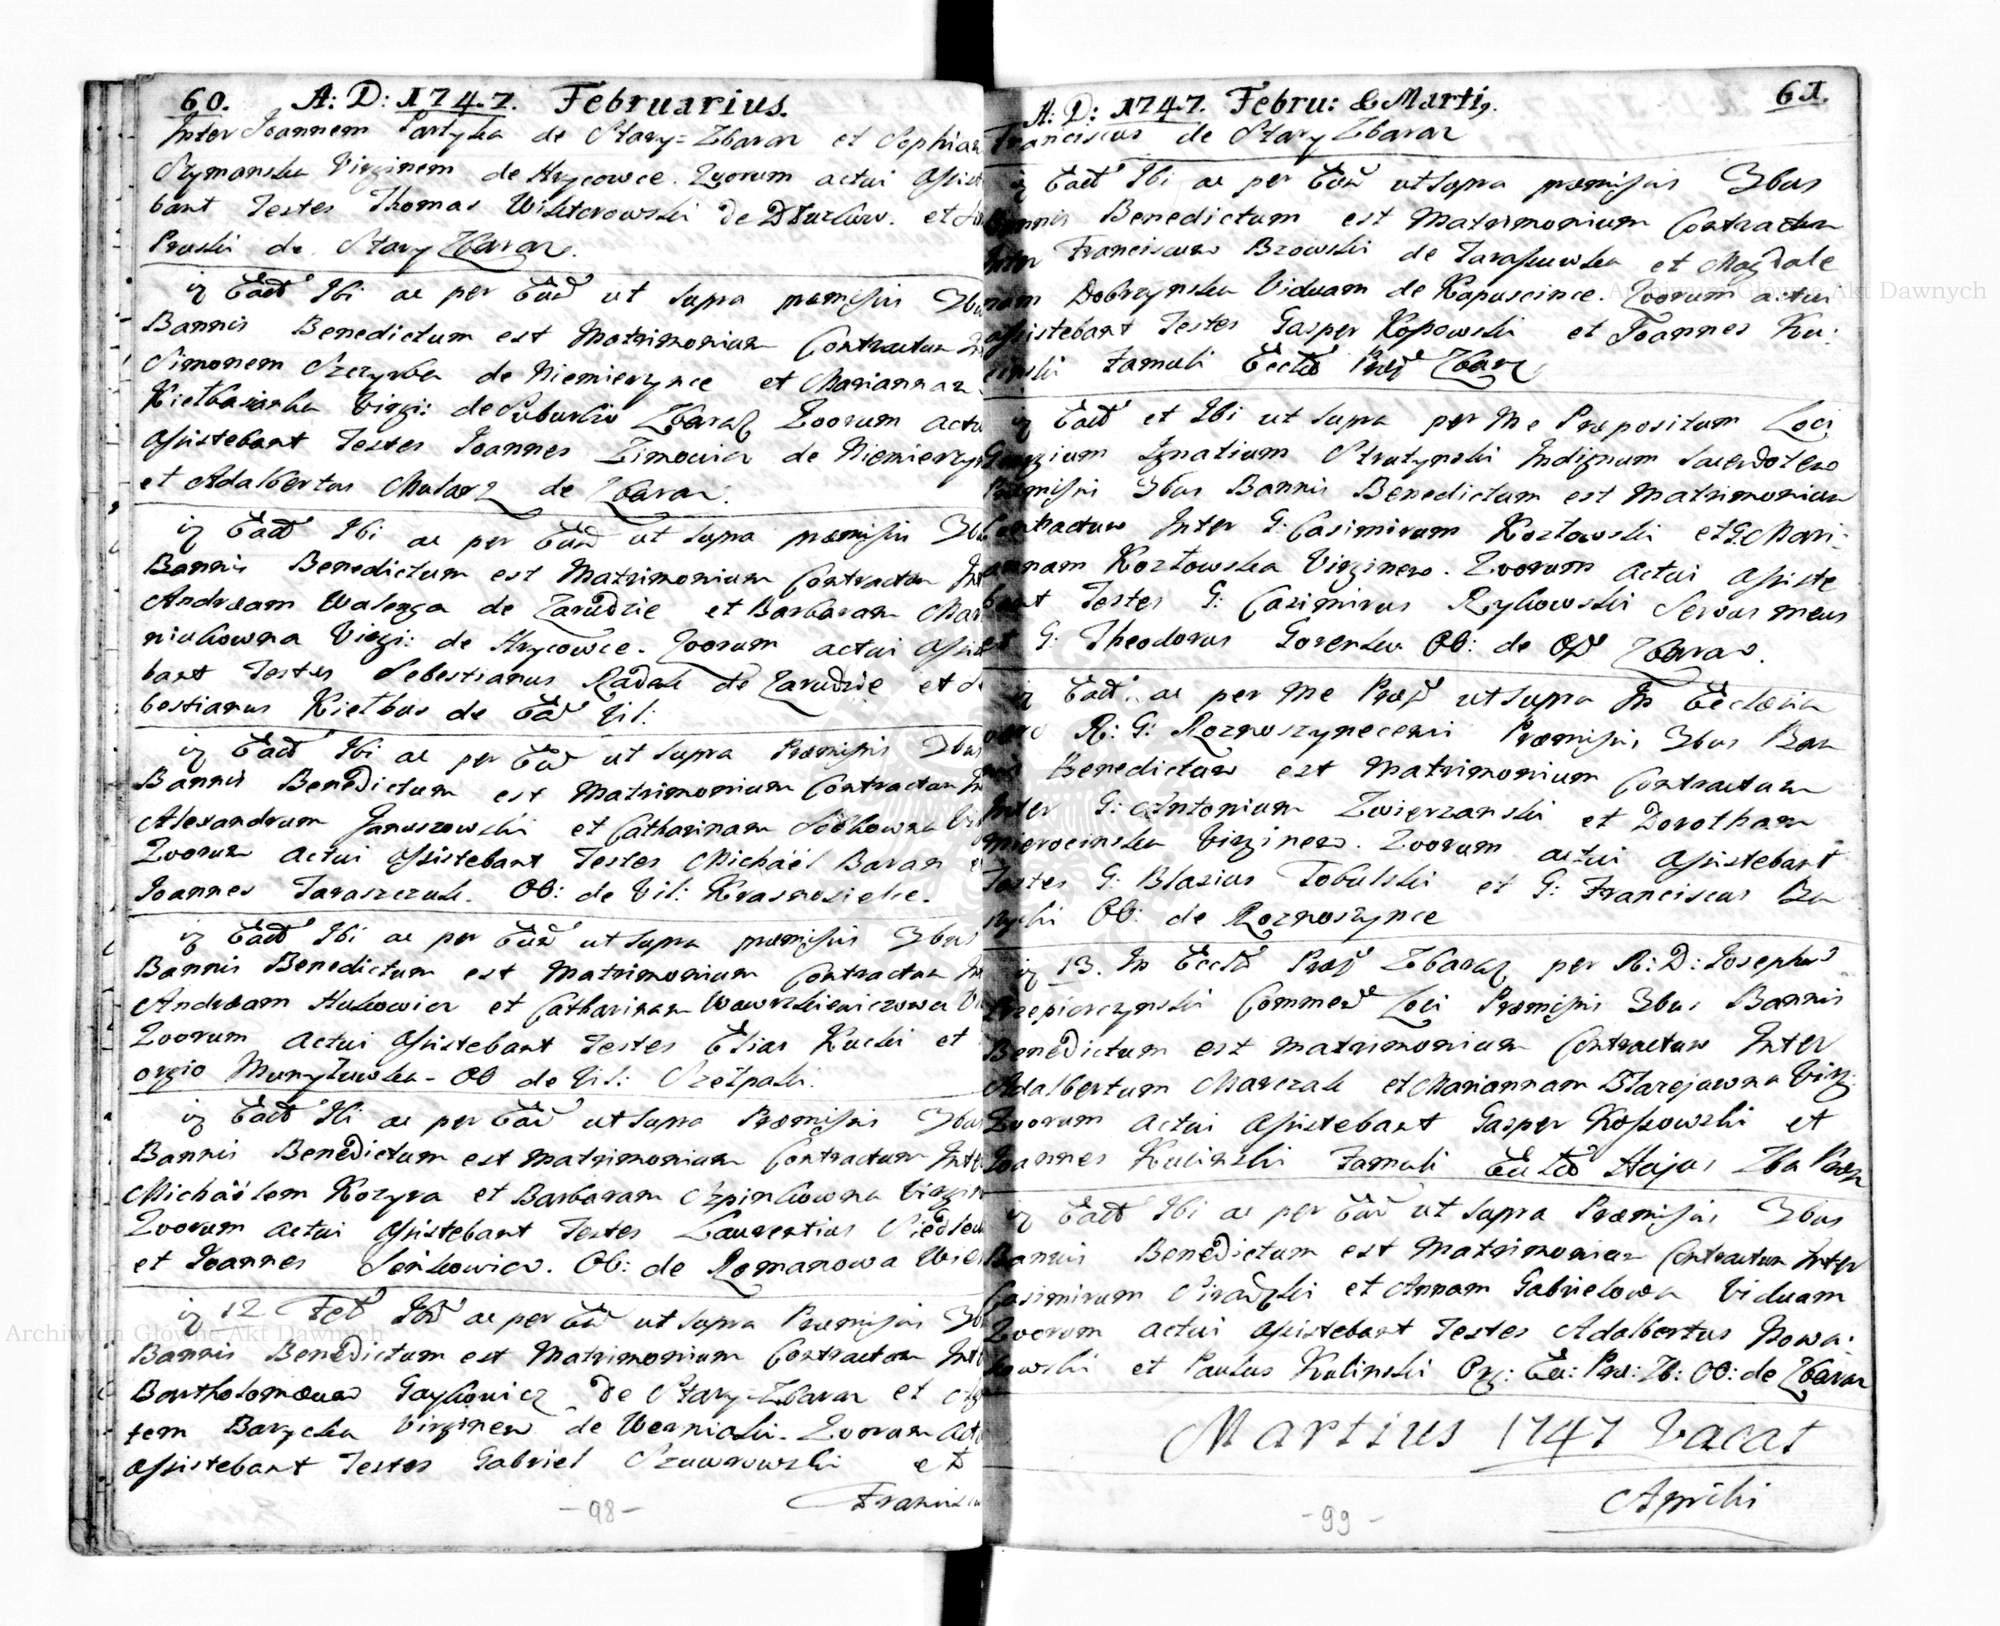 60. A: D: 1747. Februarius.
Inter Joannem Partyka de Stary=Zbaraz et Sophian
Szymanska Virginem de Hrycowce. Quorum actui assist
bant Testes Thomas Wiktorowski de et
Pruski de Stary Zbaraz.
Ead Ibi ac per ut Supra præmissis 3bus
Bannis Benedictum est Matrimonium Contractum
Simonem Szczyrba de Niemierzynce et Mariannam
Kiełbasianka Virgi: de Suburbio Zbaraz Quorum actu
assistebant Testes Joannes Zimowicz de Niemierzyn
et Adalbertus Malarz de Zbaraz.
Ead Ibi ac per ut Supra præmissis 3bus
Bannis Benedictum est Matrimonium Contractum Int
Andræam Walenga de Zarudzie et Barbaram Mar
niukowna Virgi: de Hrycowce. Quorum actui assist
bant Testes Sebestianus Radak de Zarudzie et Se
bestianus Kiełbus de Vil:
Ead Ibi ac per ut Supra Præmissis 3bus
Bannis Benedictum est Matrimonium Contractum
Alexandrum Januszowski et Catharinam
Quorum actui assistebant Testes Michaël Baran
Joannes Taraszczuk. OO: de Vil: Krasnosielce.
Ead Ibi ac per ut Supra præmissis 3bus
Bannis Benedictum est Matrimonium Contractum In
Andræam Hukowicz et Catharinam Wawrzkiewiczowa Vi
Quorum actui assistebant Testes Elias Kucki et
orgio OO de Vil: Szełpaki.
Ead Ibi ac per ut Supra Præmissis 3bus
Bannis Benedictum est Matrimonium Contractum Int
Michaëlem Kozyra et Barbaram Szpinkowna Virgin
Quorum actui assistebant Testes Laurentius
et Joannes Sinkowicz. OO: de Romanowa
12 Feb ac per ut Supra Præmissis 3bus
Bannis Benedictum est Matrimonium Contractum Int
Bartholomæum Gaykowicz de Stary=Zbaraz et
tem Barycka Virginem de Werniaki. Quorum act
assistebant Testes Gabriel et
Francis
- 98 -
A: D: 1747. Febru: & Marti9. 61.
Franciscus de Stary Zbaraz
Ead Ibi ac per ut Supra præmissis 3bus
Bannis Benedictum est Matrimonium Contractum
Inter Franciscum Bzowski de et Magdale
nam Dobrzynska Viduam de Kapuscince. Quorum actui
assistebant Testes Gasper Kossowski et Joannes Ku:
linski Famuli Zbaraz
Ead et Ibi ut Supra per Me Præpositum Loci
Ignatium Strutynski Indignum Sacerdotem
Præmissis 3bus Bannis Benedictum est Matrimonium
Contractum Inter G: Casimirum Kozłowski et G: Mari:
annam Kozłowska Virginem. Quorum actui assiste
bant Testes G: Casimirus Rykowski Servus meus
et G: Theodorus OO: de Zbaraz.
Ead. ac per Me ut Supra In Ecclesia
R: G: Roznoszynecensi Præmissis 3bus Ban
Benedictum est Matrimonium Contractum
Inter G: Antonium Zwierzanski et Dorotham
Virginem. Quorum actui assistebant
Testes G: Blasius Tobulski et G: Franciscus
OO: de Roznoszynce
13. In Zbaraz per R: D: Josephum
Commen Loci Præmissis 3bus Bannis
Benedictum est Matrimonium Contractum Inter
Adalbertum Marczak et Mariannam Błazejowna Virg:
Quorum actui assistebant Gasper Kossowski et
Joannes Kulinski Famuli Hujus
Ead Ibi ac per ut Supra Præmissis 3bus
Bannis Benedictum est Matrimonium Contractum Inter
Casimirum Siradzki et Annam Gabrielowa Viduam
Quorum actui assistebant Testes Adalbertus Nowa:
kowski et Paulus Kulinski Org: OO: de Zbaraz
Martius 1747 Vacat
Aprilis
- 99 -
Archiwum Główne Akt Dawnych
Archiwum Główne Akt Dawnych